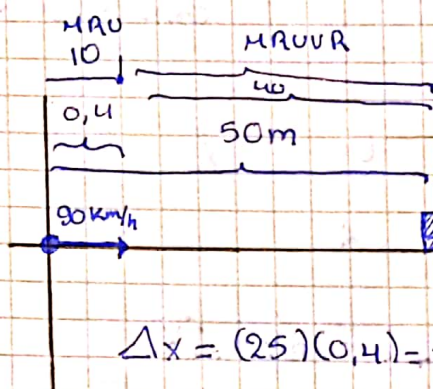 MRU
MRUVR
10
40
0,4
50m
90 Km/h
Δx = (25)(0,4) =